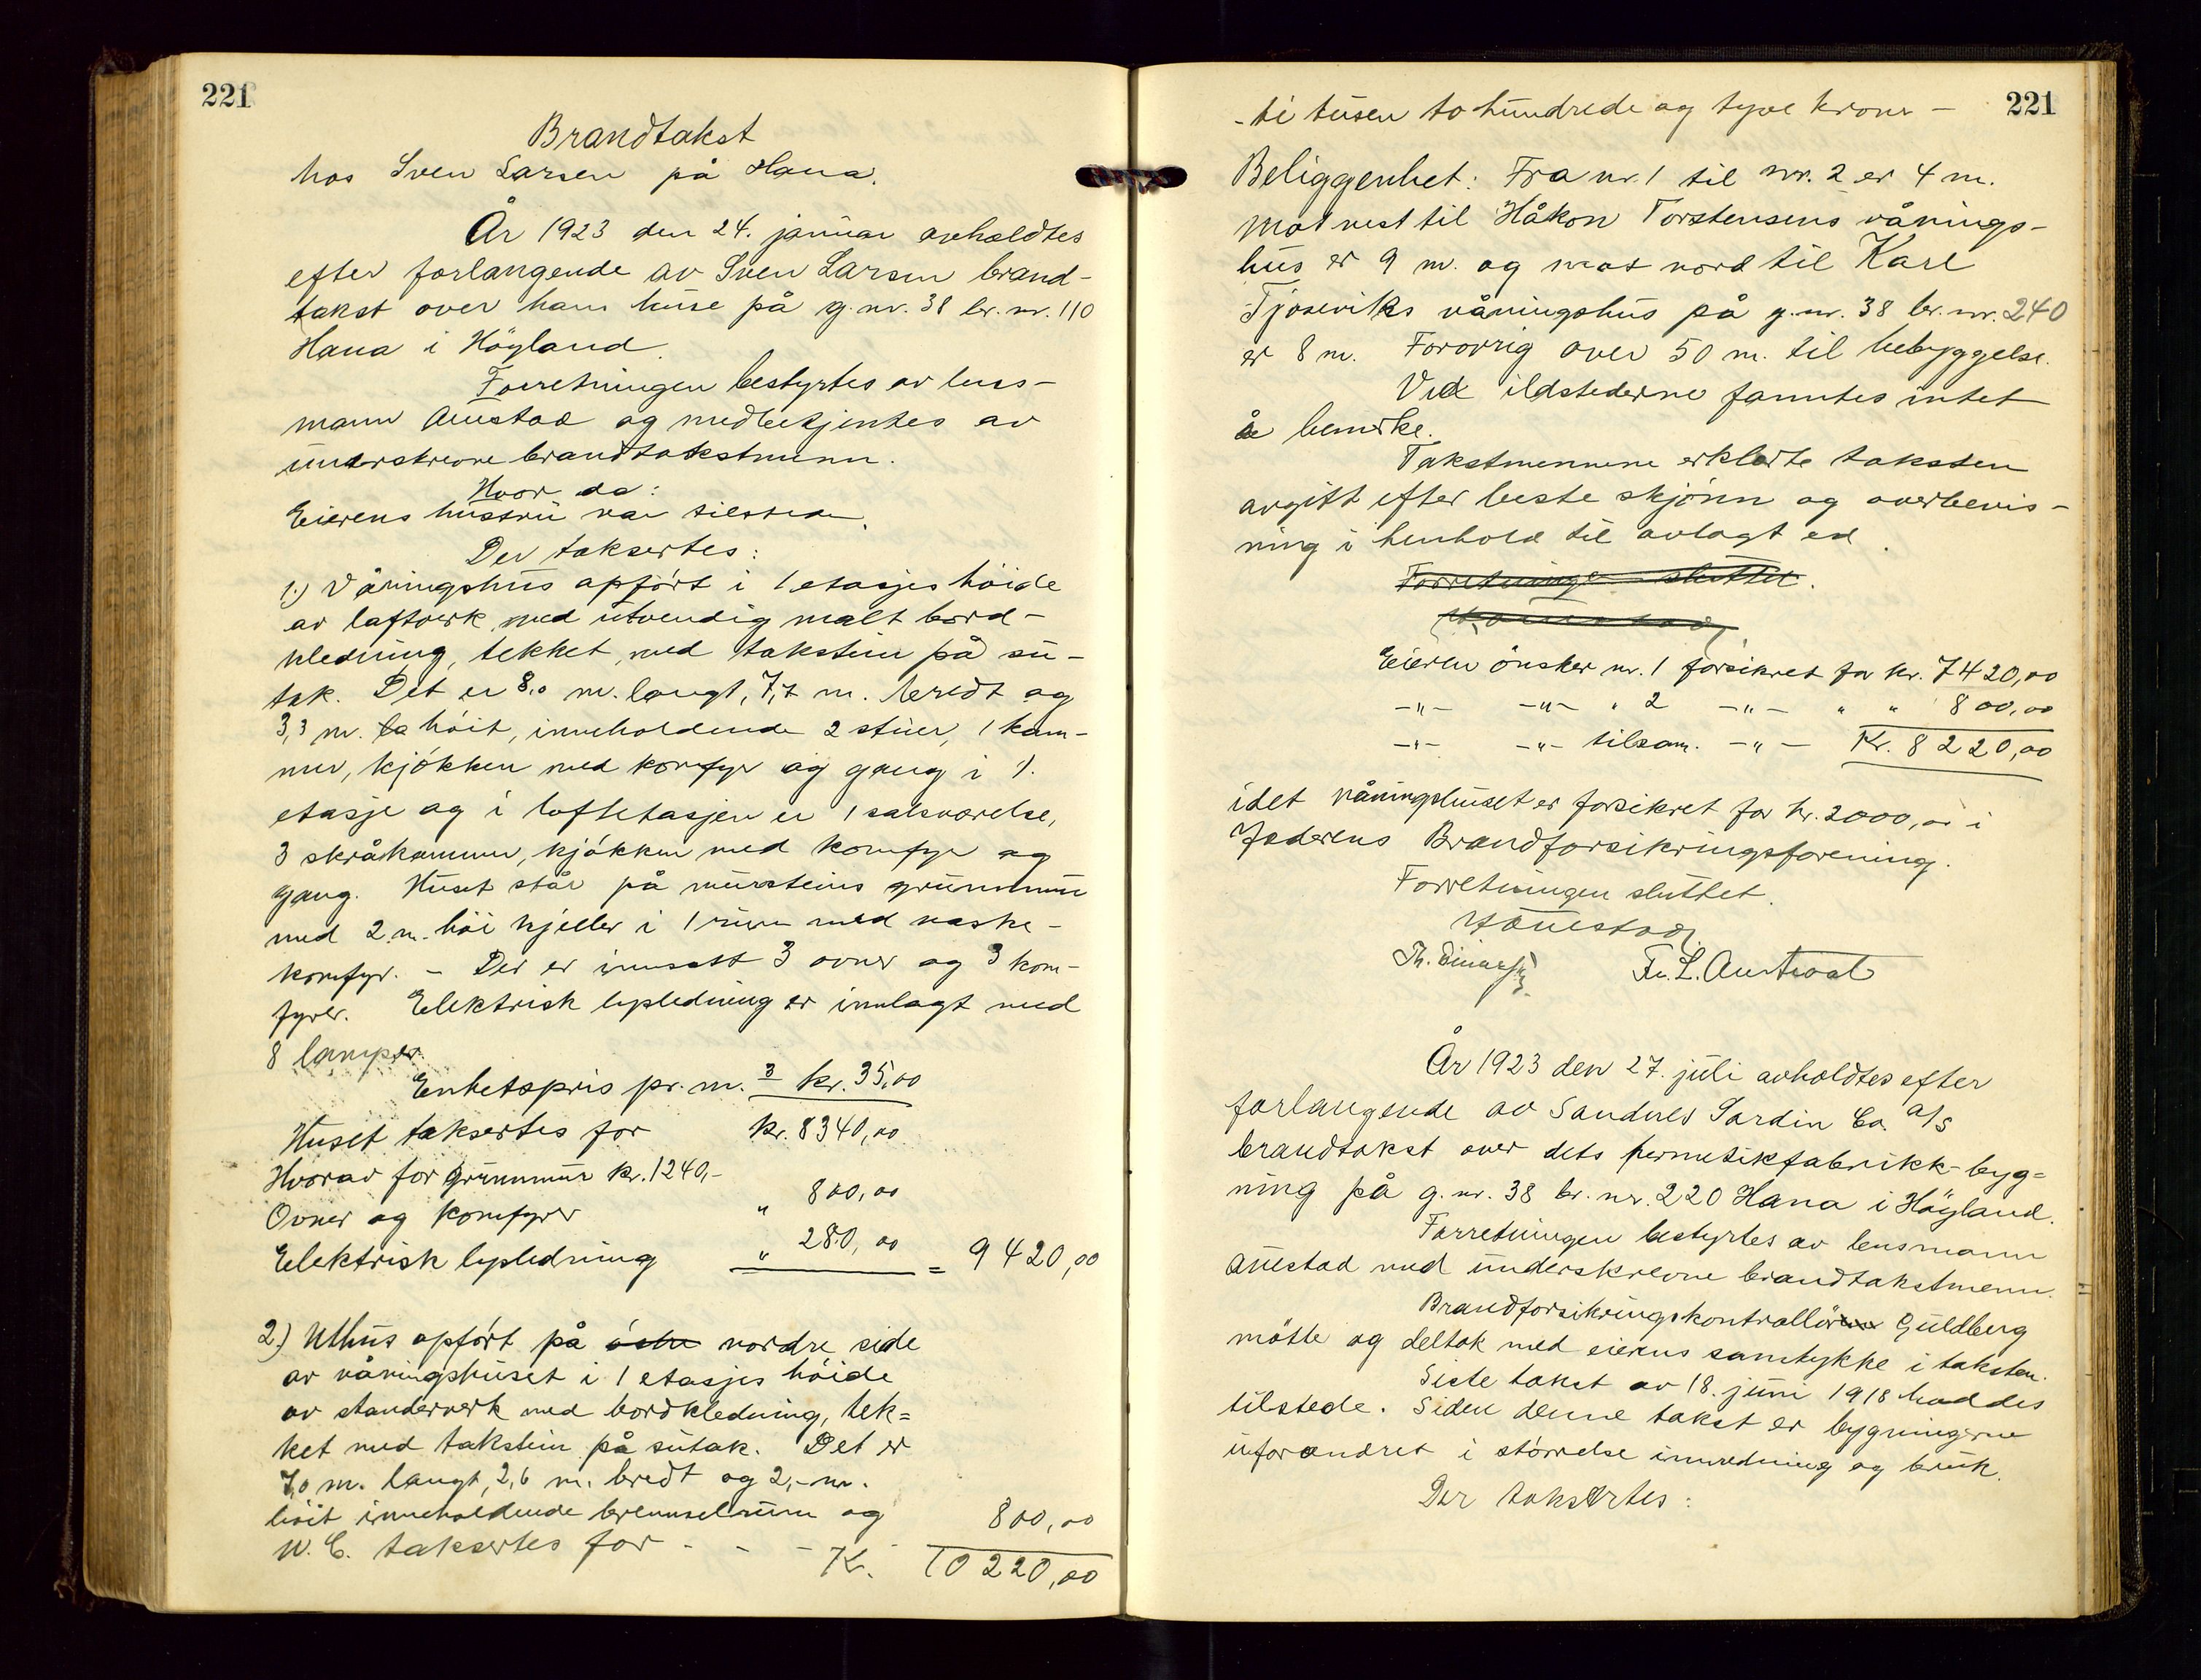 221
Brandtakst
hos Sven Larsen på Hana.
År 1923 den 24. januar avholdtes
efter forlangende av Sven Larsen brand-
takst over hans huse på g.nr. 38 br.nr. 110
Hana i Höyland.
Forretningen bestyrtes av lens-
mann Auestad og medbetjentes av
underskrevne brandtakstmenn.
Hvor da:
Eierens hustru var tilstede.
Der taksertes:
1.) Våningshus opført i 1 etasjes höide
av laftverk med utvendig malt bord-
kledning, tekket med takstein på su-
tak. Det er 8,0 m. langt, 7,7 m. bredt og
3,3 m. la höit, inneholdende 2 stuer, 1 kam-
mer, kjökken med komfyr og gang i 1.
etasje og i loftetasjen er 1 salsværelse,
3 skråkammer, kjökken med komfyr og
gang. Huset står på mursteins grunnmur
med 2 m. höi kjeller i 1 rum med vaske-
komfyr. - Der er innsatt 3 ovner og 3 kom-
fyrer. Elektrisk lysledning er innlagt med
8 lamper.
Enhetspris pr. m.3 kr. 35,00
Huset taksertes for kr. 8340,00
Hvorav for grunnmur kr. 1240,-
Ovner og komfyrer " 800,00
Elektrisk lysledning " 280,00 = 9420,00
2.) Uthus opført på östre nordre side
av våningshuset i 1 etasjes höide
av standerverk med bordkledning, tek=
ket med takstein på sutak. Det er
7,0 m. langt, 2,6 m. bredt og 2,- m.
höit inneholdende brennselrum og
W.C. taksertes for - - - 800,00
Kr. 10220,00
221
- ti tusen to hundrede og tyve kroner -
Beliggenhet: Fra nr. 1 til nr. 2 er 4 m.
Mot vest til Håkon Torstensens vånings-
hus er 9 m. og mot nord til Karl
Tjoseviks våningshus på g.nr. 38 br.nr. 240
er 8 m. Forøvrig over 50 m. til bebyggelse.
Ved ildstederne fanntes intet
å bemerke.
Takstmennene erklærte taksten
avgitt efter beste skjönn og overbevis-
ning i henhold til avlagt ed.
Forretningen sluttet.
Eieren önsker nr. 1 forsikret for kr. 7420,00
-"- -"- " 2 -"- " " 800,00
-"- -"- tilsam. -"- Kr. 8220,00
idet våningshuset er forsikret for kr. 2000,00 i
Jæderens Brandforsikringsforening.
Forretningen sluttet.
Auestad
Fr. L. Austvoll
År 1923 den 27. juli avholdtes efter
forlangende av Sandnes Sardin Co. a/s
brandtakst over dets hermetikfabrikk-byg=
ning på g.nr. 38 br.nr. 220 Hana i Höyland.
Forretningen bestyrtes av lensmann
Auestad med underskrevne brandtakstmenn.
Brandforsikringskontrollör Guldberg
mötte og deltok med eierens samtykke i taksten.
Siste takst av 18. juni 1918 haddes
tilstede. Siden denne takst er bygningerne
uforandret i störrelse innredning og bruk.
Der taksertes: